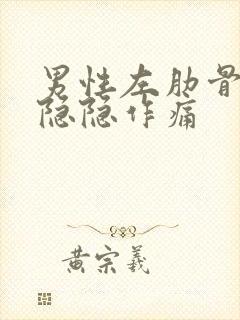 男性左肋骨
隐隐作痛
黄宗羲